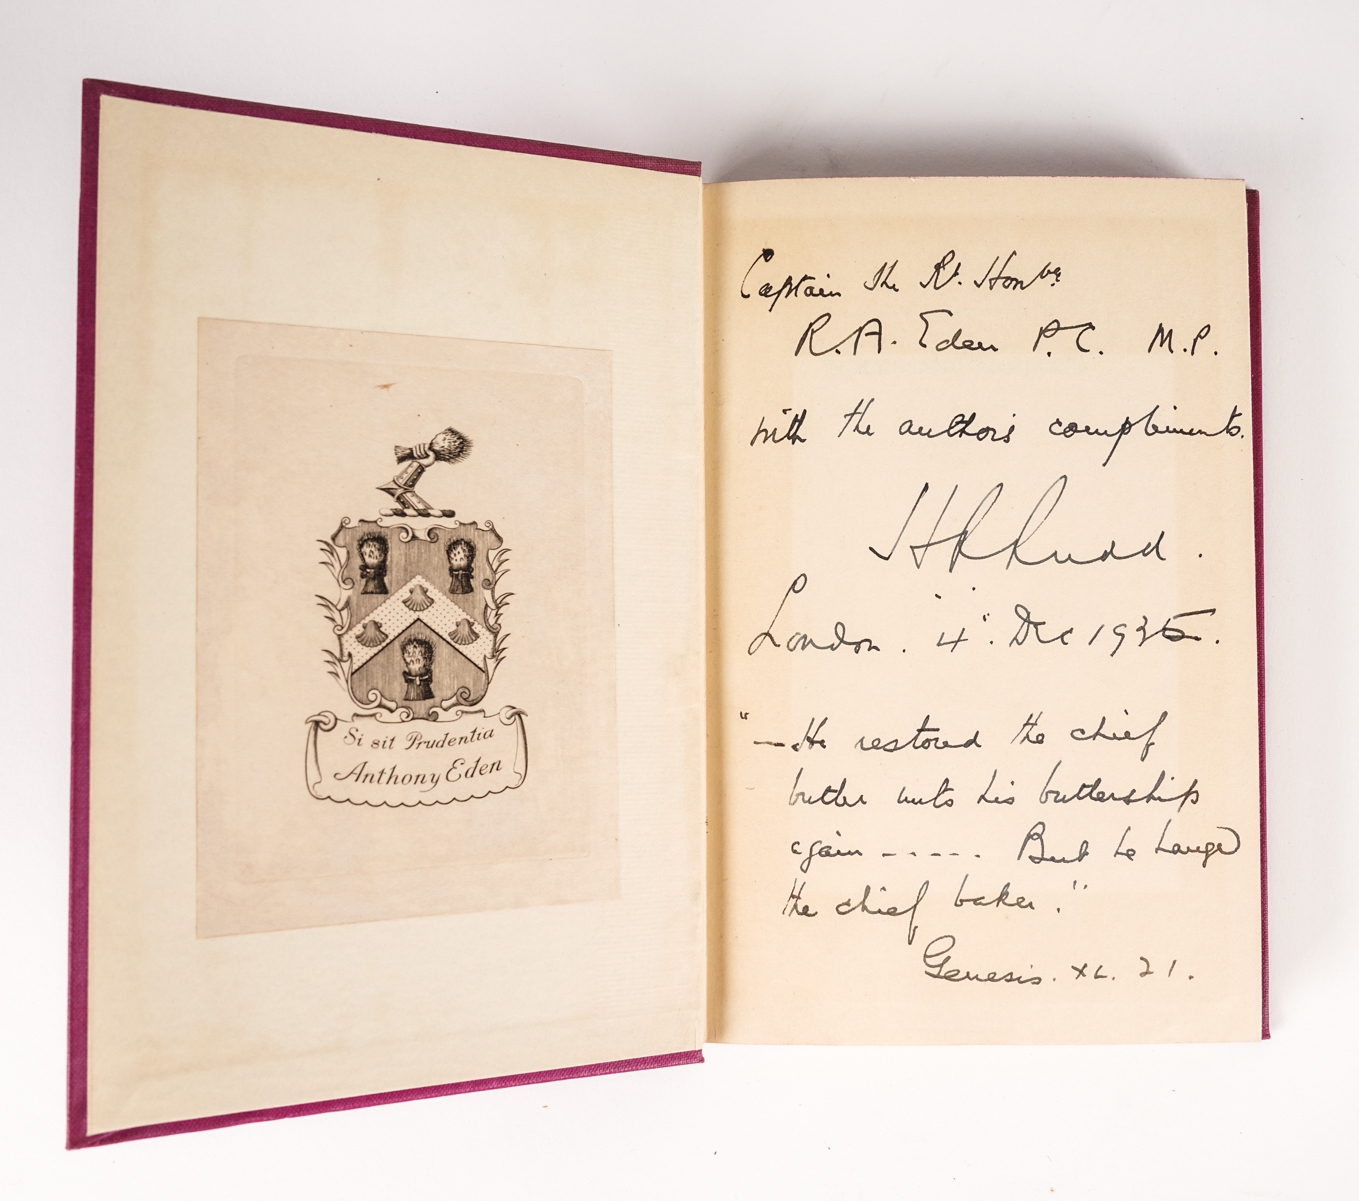 Si sit Prudentia
Anthony Eden
Captain the Rt. Honble
R. A. Eden P.C. M.P.
with the author's compliments.
H R Rudd.
London. 4". Dec 1935.
"— He restored the chief
butler unto his butlership
again - - - - -. But he hanged
the chief baker."
Genesis. XL. 21.